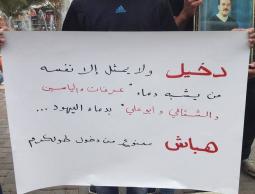 دخيل ولا يمثل إلا نفسه
من يشبه دماء "عرفات و ياسين
والشقاقي و ابو علي" بدماء اليهود ...
هباش ممنوع من دخول طولكرم